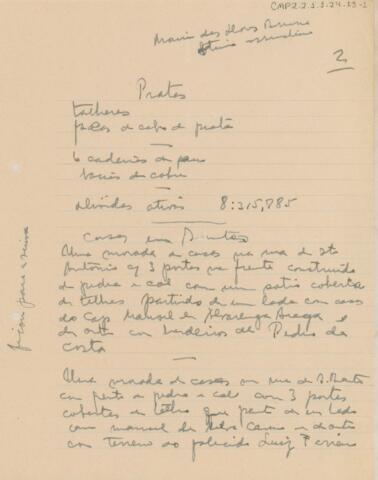 CMP2.2.1.2.24.13-1
Maria das Dores
2
Pratas
talheres
facas de cabo de prata
6 cadeiras de pau
bacia de cobre
dividas ativas 8:315,885
Casas em Santos
Uma morada de casas na rua de Sto
Antonio c/ 3 portas na frente construido
de pedra e cal com um patio coberta
de telhas partindo de um lado com casas
do Cap Manuel de Alvarenga Braga e
de outro com herdeiros de Pedro da
Costa
ficou para a
Uma morada de casas na rua de S. Bento
com frente de pedra e cal com 3 portas
cobertas de telha que parte de um lado
com Manuel da Silva e de outro
com terreno do falecido Luiz